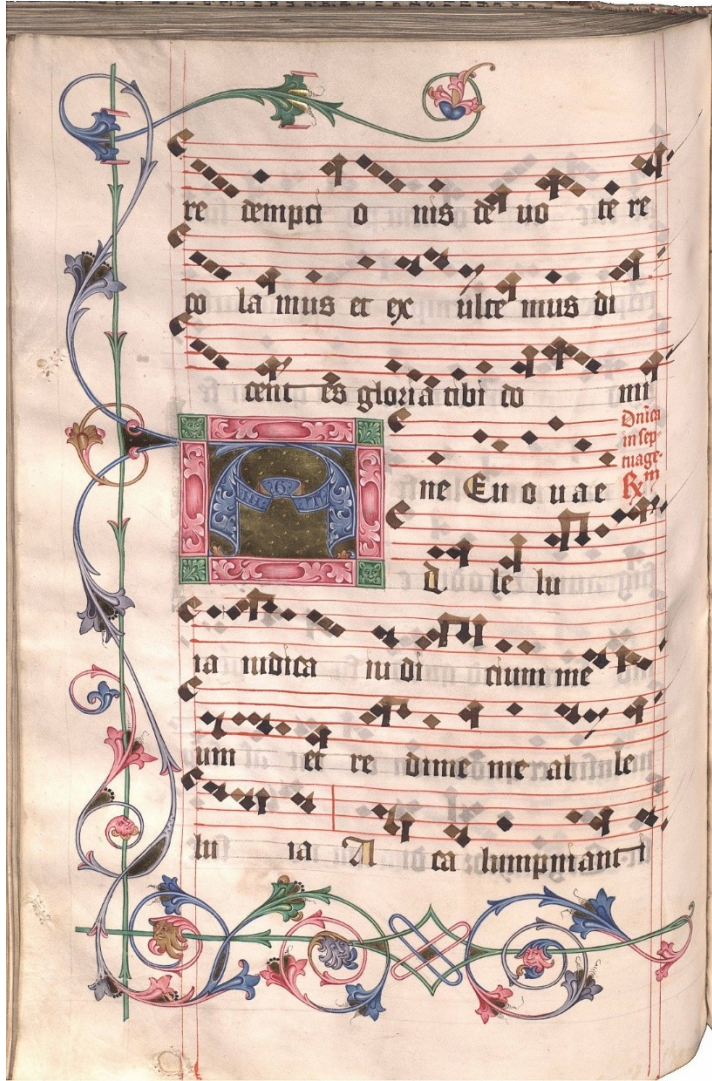 re dempci o nis de uo te re
co la mus et ex ulte mus di
cent es gloria tibi do mi
ne Eu o u a e
Dn̄ica
in sep-
tuage-
m
Rx
A l le lu
ia iudica iu di cium me
um et re dime me al le
lu ia A ca lumpniant